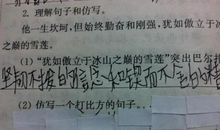 2. 理解句子和仿写。
他一生坎坷,但始终勤奋和刚强,犹如傲立于
之巅的雪莲。
(1)“犹如傲立于冰山之巅的雪莲”突出巴尔
坚韧不拔的意志和锲而不舍的精
(2)仿写一个打比方的句子。